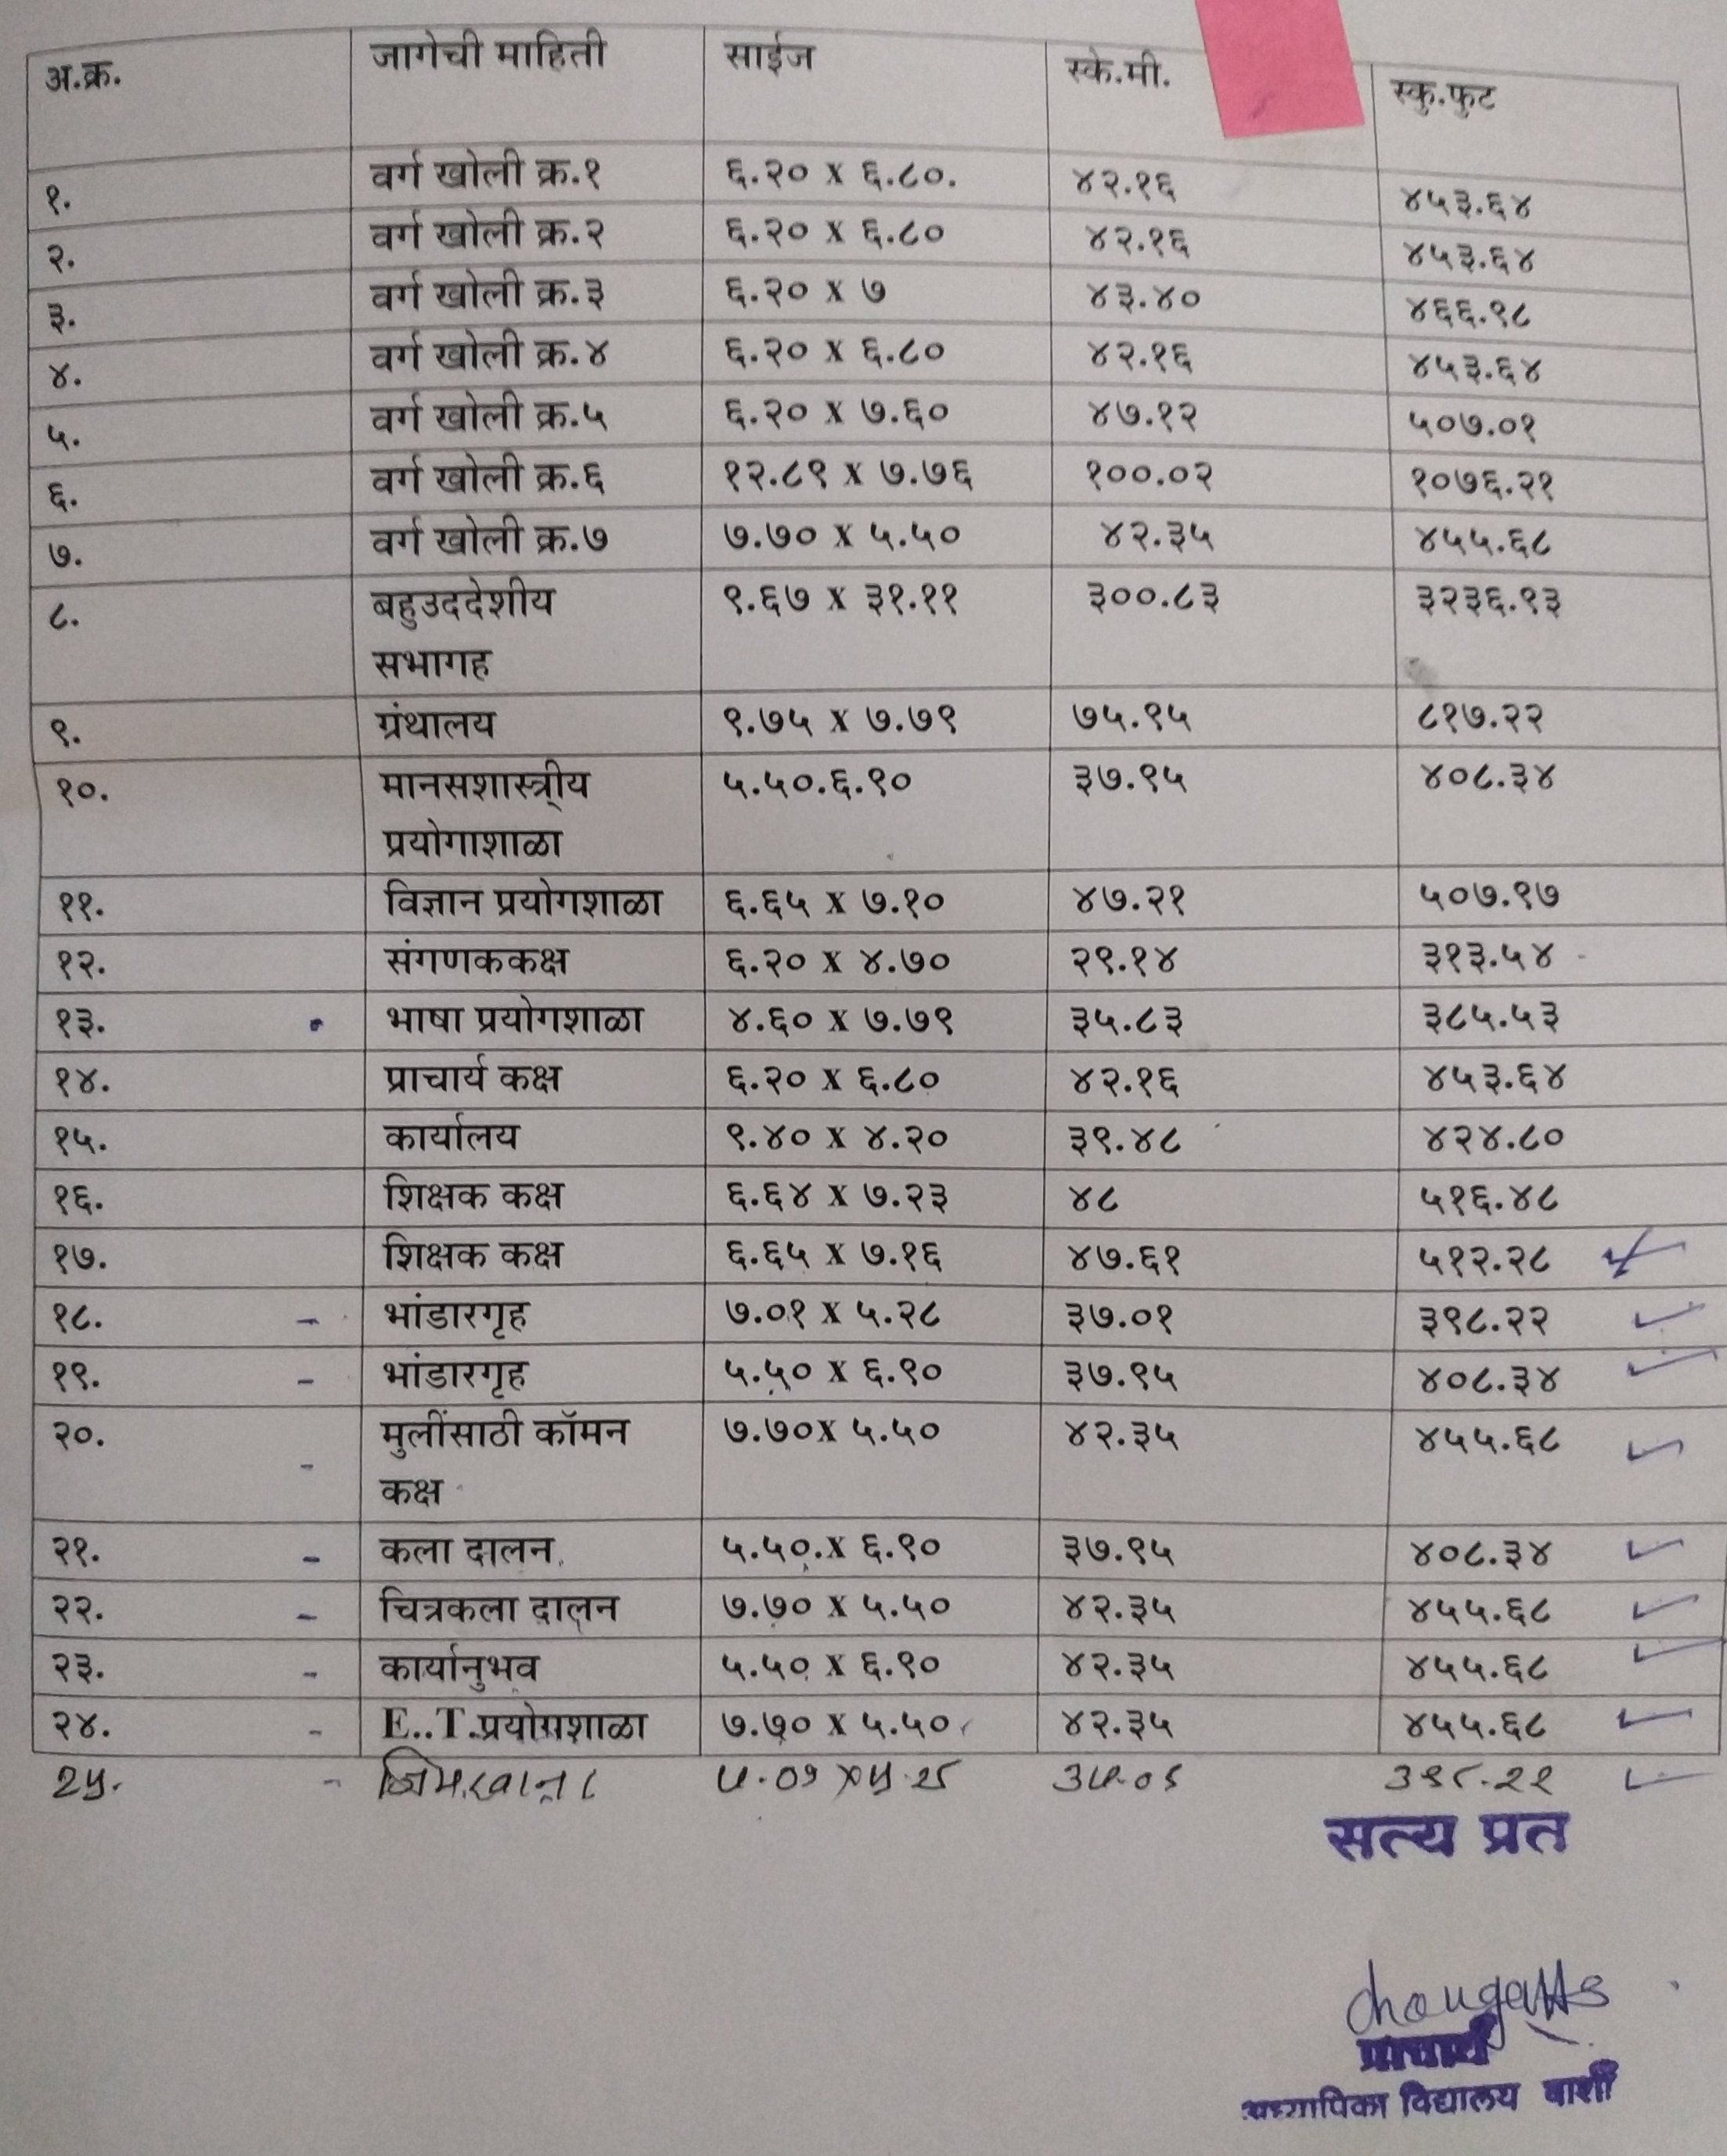 अ.क्र. जागेची माहिती साईज स्के.मी. स्कु.फुट
१. वर्ग खोली क्र.१ ६.२० x ६.८०. ४२.१६ ४५३.६४
२. वर्ग खोली क्र.२ ६.२० x ६.८० ४२.१६ ४५३.६४
३. वर्ग खोली क्र.३ ६.२० x ७ ४३.४० ४६६.९८
४. वर्ग खोली क्र.४ ६.२० x ६.८० ४२.१६ ४५३.६४
५. वर्ग खोली क्र.५ ६.२० x ७.६० ४७.१२ ५०७.०१
६. वर्ग खोली क्र.६ १२.८९ x ७.७६ १००.०२ १०७६.२१
७. वर्ग खोली क्र.७ ७.७० x ५.५० ४२.३५ ४५५.६८
८. बहुउददेशीय ९.६७ x ३१.११ ३००.८३ ३२३६.९३
सभागह
९. ग्रंथालय ९.७५ x ७.७९ ७५.९५ ८१७.२२
१०. मानसशास्त्रीय ५.५०.६.९० ३७.९५ ४०८.३४
प्रयोगाशाळा
११. विज्ञान प्रयोगशाळा ६.६५ x ७.१० ४७.२१ ५०७.९७
१२. संगणककक्ष ६.२० x ४.७० २९.१४ ३१३.५४
१३. भाषा प्रयोगशाळा ४.६० x ७.७९ ३५.८३ ३८५.५३
१४. प्राचार्य कक्ष ६.२० x ६.८० ४२.१६ ४५३.६४
१५. कार्यालय ९.४० x ४.२० ३९.४८ ४२४.८०
१६. शिक्षक कक्ष ६.६४ x ७.२३ ४८ ५१६.४८
१७. शिक्षक कक्ष ६.६५ x ७.१६ ४७.६१ ५१२.२८
१८. भांडारगृह ७.०१ x ५.२८ ३७.०१ ३९८.२२
१९. भांडारगृह ५.५० x ६.९० ३७.९५ ४०८.३४
२०. मुलींसाठी कॉमन ७.७०x ५.५० ४२.३५ ४५५.६८
कक्ष
२१. कला दालन ५.५०.x ६.९० ३७.९५ ४०८.३४
२२. चित्रकला दालन ७.७० x ५.५० ४२.३५ ४५५.६८
२३. कार्यानुभव ५.५० x ६.९० ४२.३५ ४५५.६८
२४. E..T.प्रयोगशाळा ७.७० x ५.५० ४२.३५ ४५५.६८
२५. जिमखाना
सत्य प्रत
प्राचार्य
अध्यापिका विद्यालय वाशी